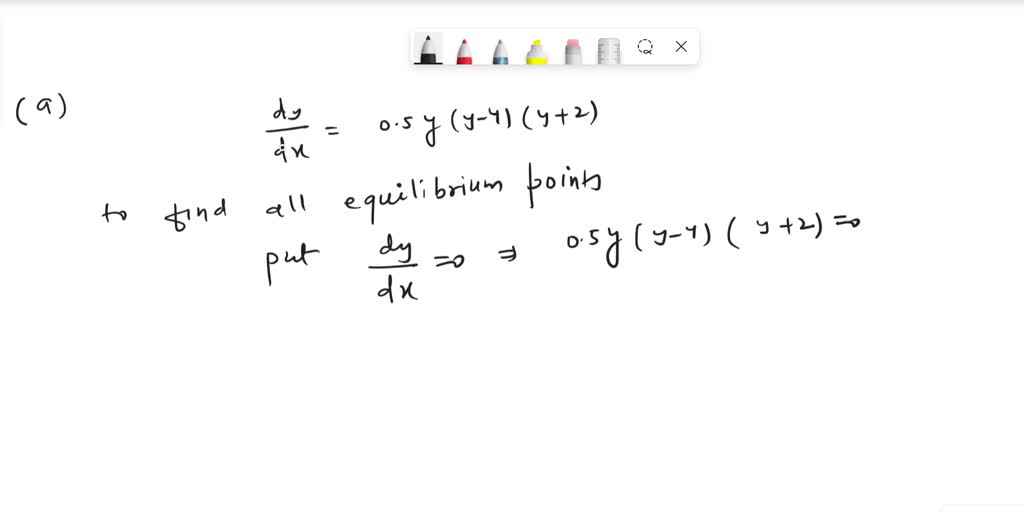 (a) dy/dx = 0.5 y (y-4) (y+2)
to find all equilibrium points
put dy/dx =0 ⇒ 0.5y (y-4) ( y +2) =0